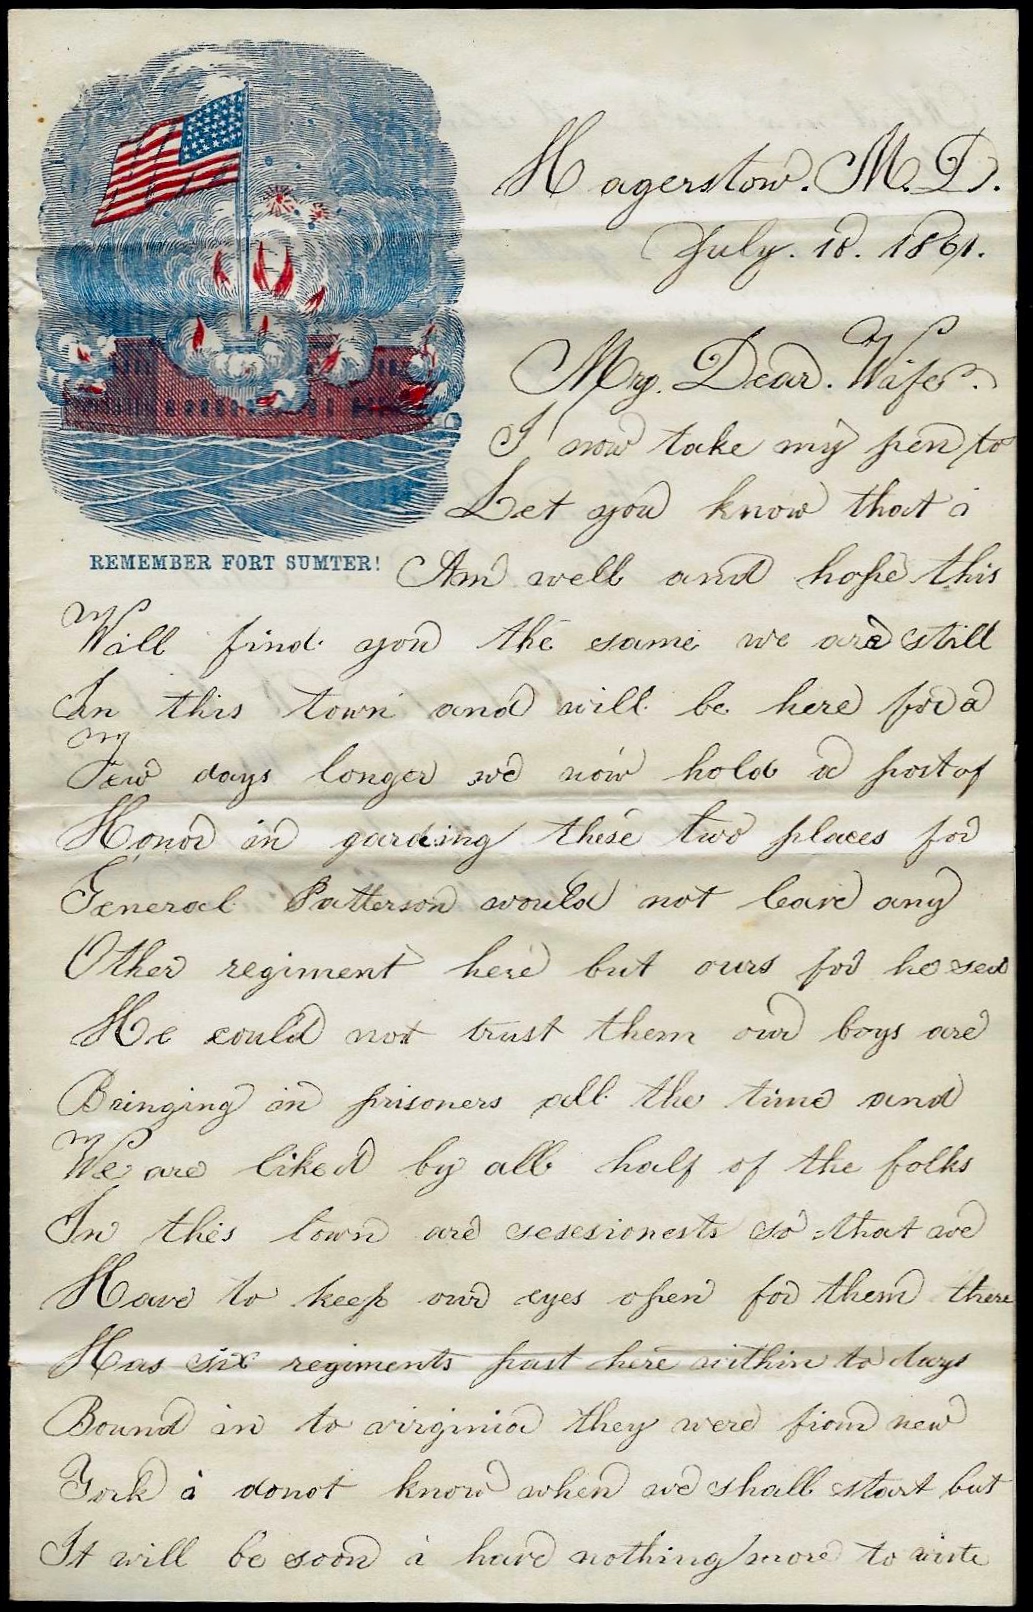 Hagerstow. M. D.
July. 18. 1861.
My. Dear. Wife.
I now take my pen to
Let you know that i
REMEMBER FORT SUMTER!
Am well and hope this
Will find you the same we are still
In this town and will be here for a
Few days longer we now hold a post of
Honor in garding these two places for
General Patterson would not leave any
Other regiment here but ours for he sed
He could not trust them our boys are
Bringing in prisoners all the time and
We are liked by all half of the folks
In this town are sesesionests so that we
Have to keep our eyes open for them there
Has six regiments past here within to days
Bound in to virginia they were from new
York i donot know when we shall start but
It will be soon i have nothing more to write